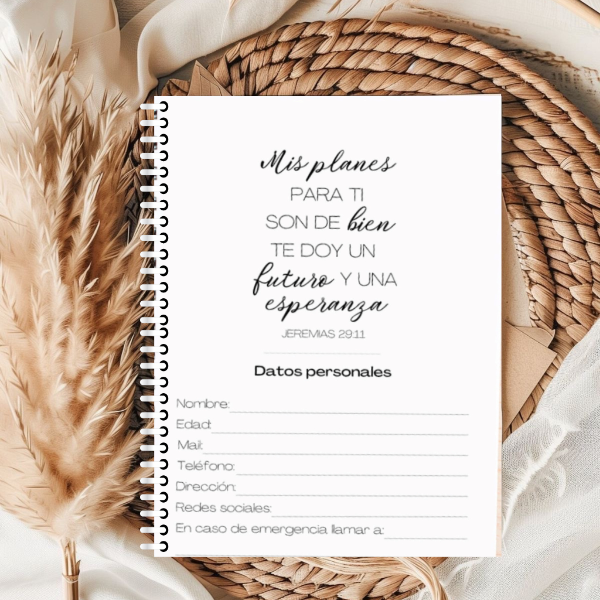 Mis planes
PARA TI
SON DE bien
TE DOY UN
futuro Y UNA
esperanza
JEREMIAS 29:11
Datos personales
Nombre:
Edad:
Mail:
Teléfono:
Dirección:
Redes sociales:
En caso de emergencia llamar a: